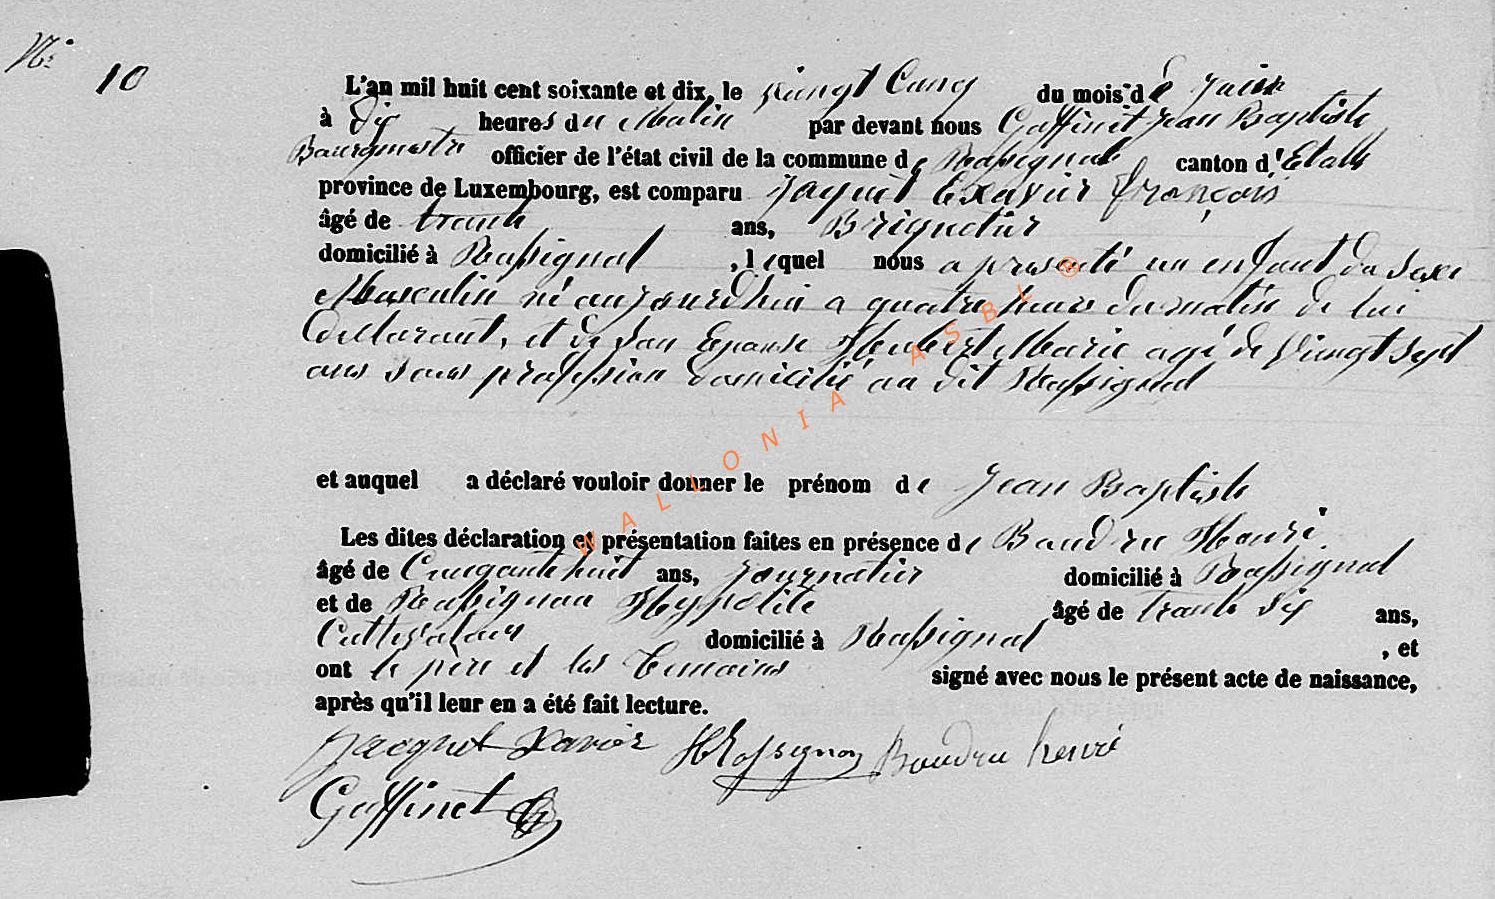 N°
10
L'an mil huit cent soixante et dix, le vingt Cinq du mois de Juin
à Dix heures du Matin par devant nous Gaffinet Jean Baptiste
Bourgmestre officier de l'état civil de la commune de Rossignol canton d'Etalle
province de Luxembourg, est comparu Jaquet Exavier françois
âgé de trente ans, Briquetier
domicilié à Rossignol , lequel nous a presenté un enfant du Sexe
Masculin né aujourdhui a quatre heures du matin de lui
Déclarant, et de Son Epouse Hubert Marie agé de Vingt Sept
ans Sans profession domicilié au dit Rossignol
et auquel a déclaré vouloir donner le prénom de Jean Baptiste
Les dites déclaration et présentation faites en présence de Baudru Henri
âgé de Cinquante huit ans, Journalier domicilié à Rossignol
et de Rossignon Hyppolite âgé de trente Six ans,
Cultivateur domicilié à Rossignol , et
ont le père et les témoins signé avec nous le présent acte de naissance,
après qu'il leur en a été fait lecture.
Jacquet Xavier HRossignon Baudru henri
Gaffinet
WALLONIA ASBL ®